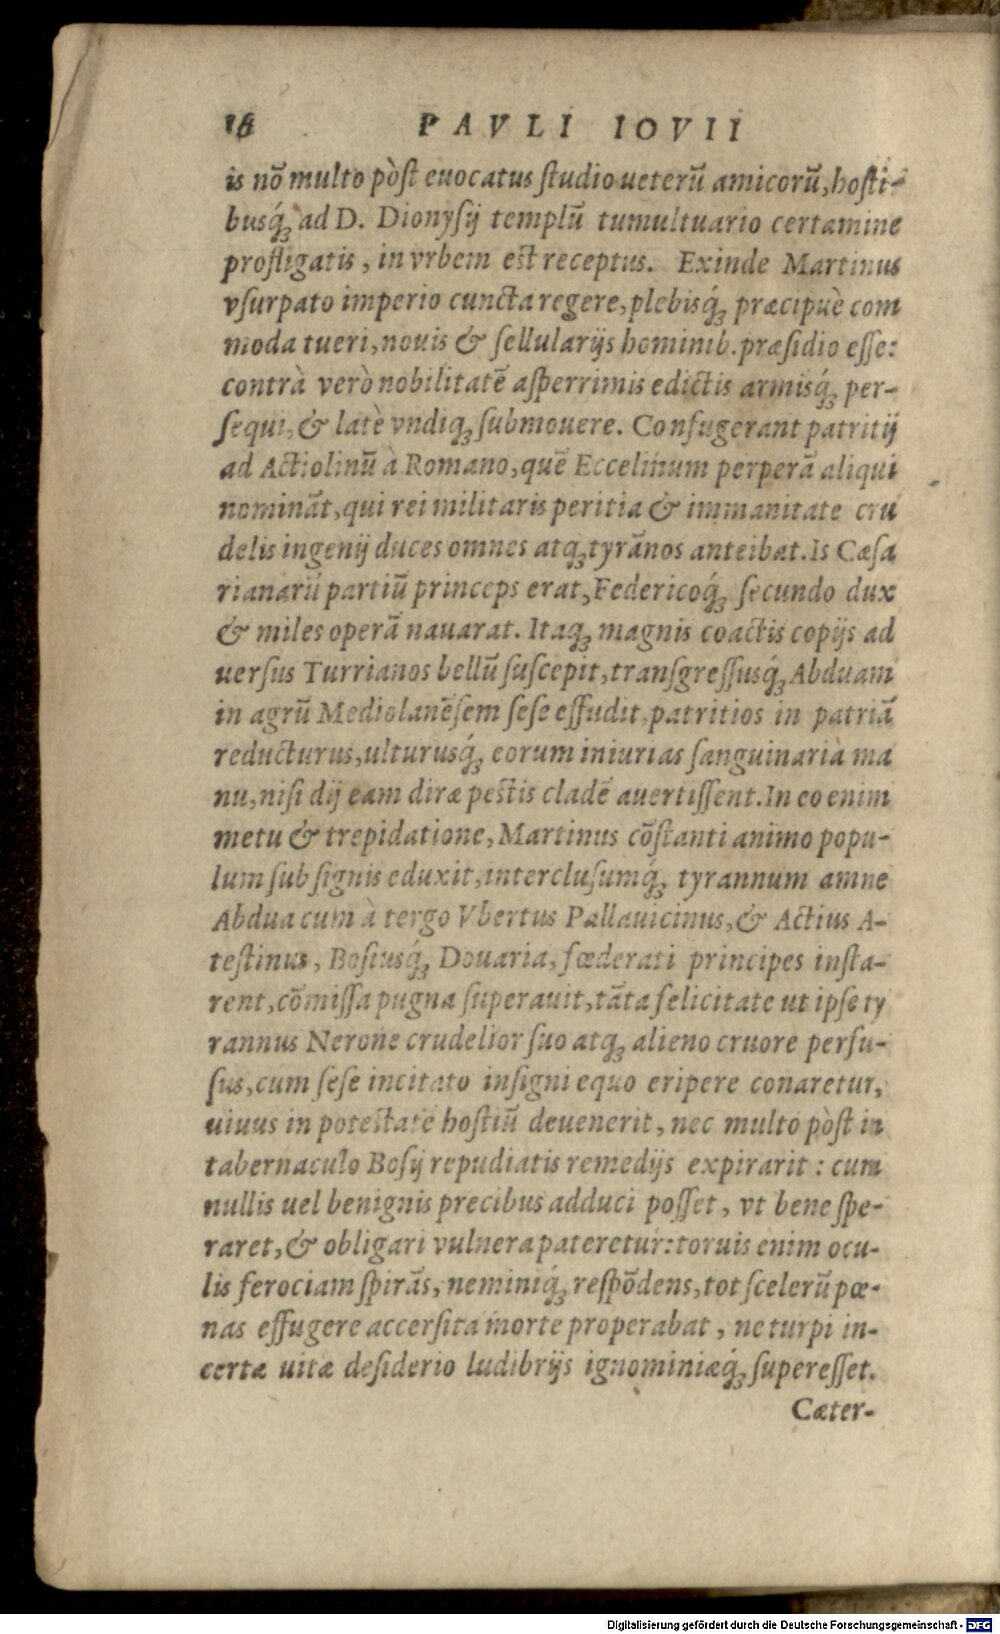 16 PAVLI IOVII
is nō multo pòst euocatus studio ueterū amicorū, hosti-
busq́ꝫ ad D. Dionysij templū tumultuario certamine
profligatis, in vrbem est receptus. Exinde Martinus
vsurpato imperio cuncta regere, plebisq́ꝫ præcipuè com
moda tueri, nouis & sellularijs hominib. præsidio esse:
contrà verò nobilitatē asperrimis edictis armisq́ꝫ per-
sequi, & latè vndiqꝫ submouere. Confugerant patritij
ad Actiolinū à Romano, quē Eccelinum perperā aliqui
nomināt, qui rei militaris peritia & immanitate cru
delis ingenij duces omnes atqꝫ tyrānos anteibat. Is Cæsa
rianarū partiū princeps erat, Federicoq́ꝫ secundo dux
& miles operā nauarat. Itaqꝫ magnis coactis copijs ad
uersus Turrianos bellū suscepit, transgressusq́ꝫ Abduam
in agrū Mediolanēsem sese effudit, patritios in patriā
reducturus, ulturusq́ꝫ eorum iniurias sanguinaria ma
nu, nisi dij eam diræ pestis cladē auertissent. In eo enim
metu & trepidatione, Martinus cōstanti animo popu-
lum sub signis eduxit, interclusumq́ꝫ tyrannum amne
Abdua cum à tergo Vbertus Pallauicinus, & Actius A-
testinus, Bosiusq́ꝫ Douaria, fœderati principes insta-
rent, cōmissa pugna superauit, tāta felicitate ut ipse ty
rannus Nerone crudelior suo atqꝫ alieno cruore perfu-
sus, cum sese incitato insigni equo eripere conaretur,
uiuus in potestatē hostiū deuenerit, nec multo pòst in
tabernaculo Bosij repudiatis remedijs expirarit : cum
nullis uel benignis precibus adduci posset, vt bene spe-
raret, & obligari vulnera pateretur: toruis enim ocu-
lis ferociam spirās, neminiq́ꝫ respōdens, tot scelerū pœ-
nas effugere accersita morte properabat, ne turpi in-
certæ uitæ desiderio ludibrijs ignominiæq́ꝫ superesset.
Cæter-
Digitalisierung gefördert durch die Deutsche Forschungsgemeinschaft - DFG